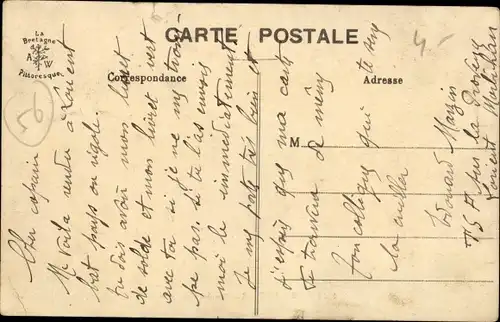 La
Bretagne
A W
Pittoresque
CARTE POSTALE
Correspondance
Adresse
M
50
4-
Cher copain
Me voila rendu à Lorient
bat pays on rigole
tu dois avoir mon livret
de solde et mon livret vert
avec toi si je ne me trom
pe pas. si tu l'as envois
moi le immediatement
je me porte très bien et
j'espère que ma carte
te trouvera de même
Ton collègue qui te
Edouard
Lorient Morbihan